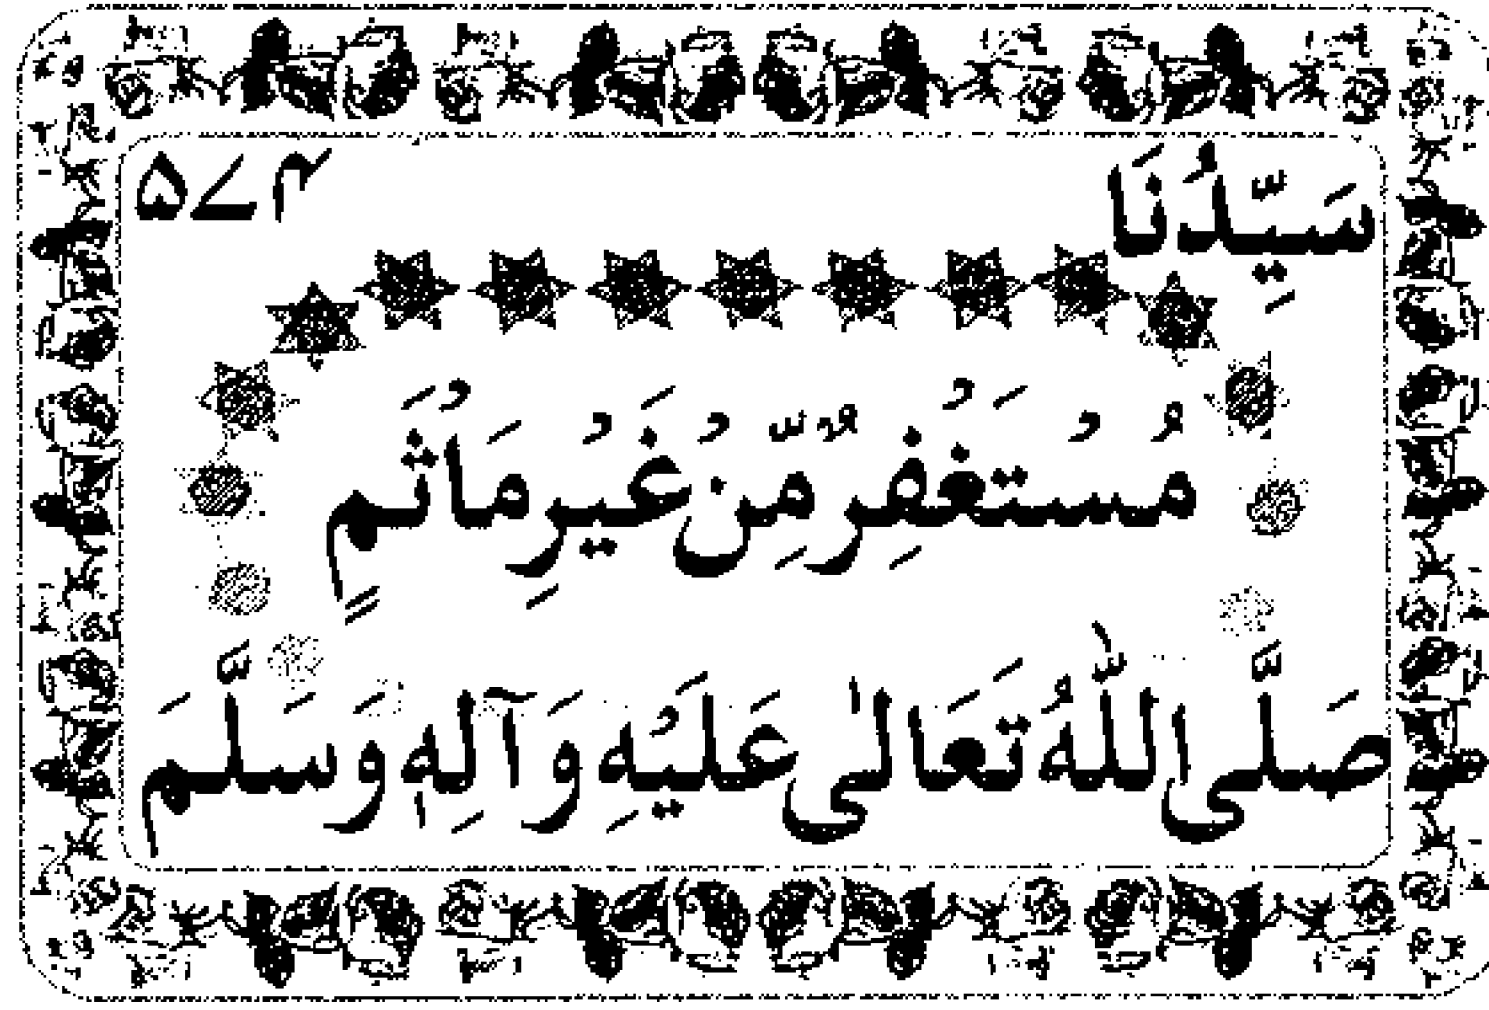 سَيِّدُنَا ۵۷۴
مُسْتَغْفِرٌ مِّنْ غَيْرِ مَاْثَمٍ
صَلَّى اللّٰهُ تَعَالىٰ عَلَيْهِ وَآلِهٖ وَسَلَّمَ